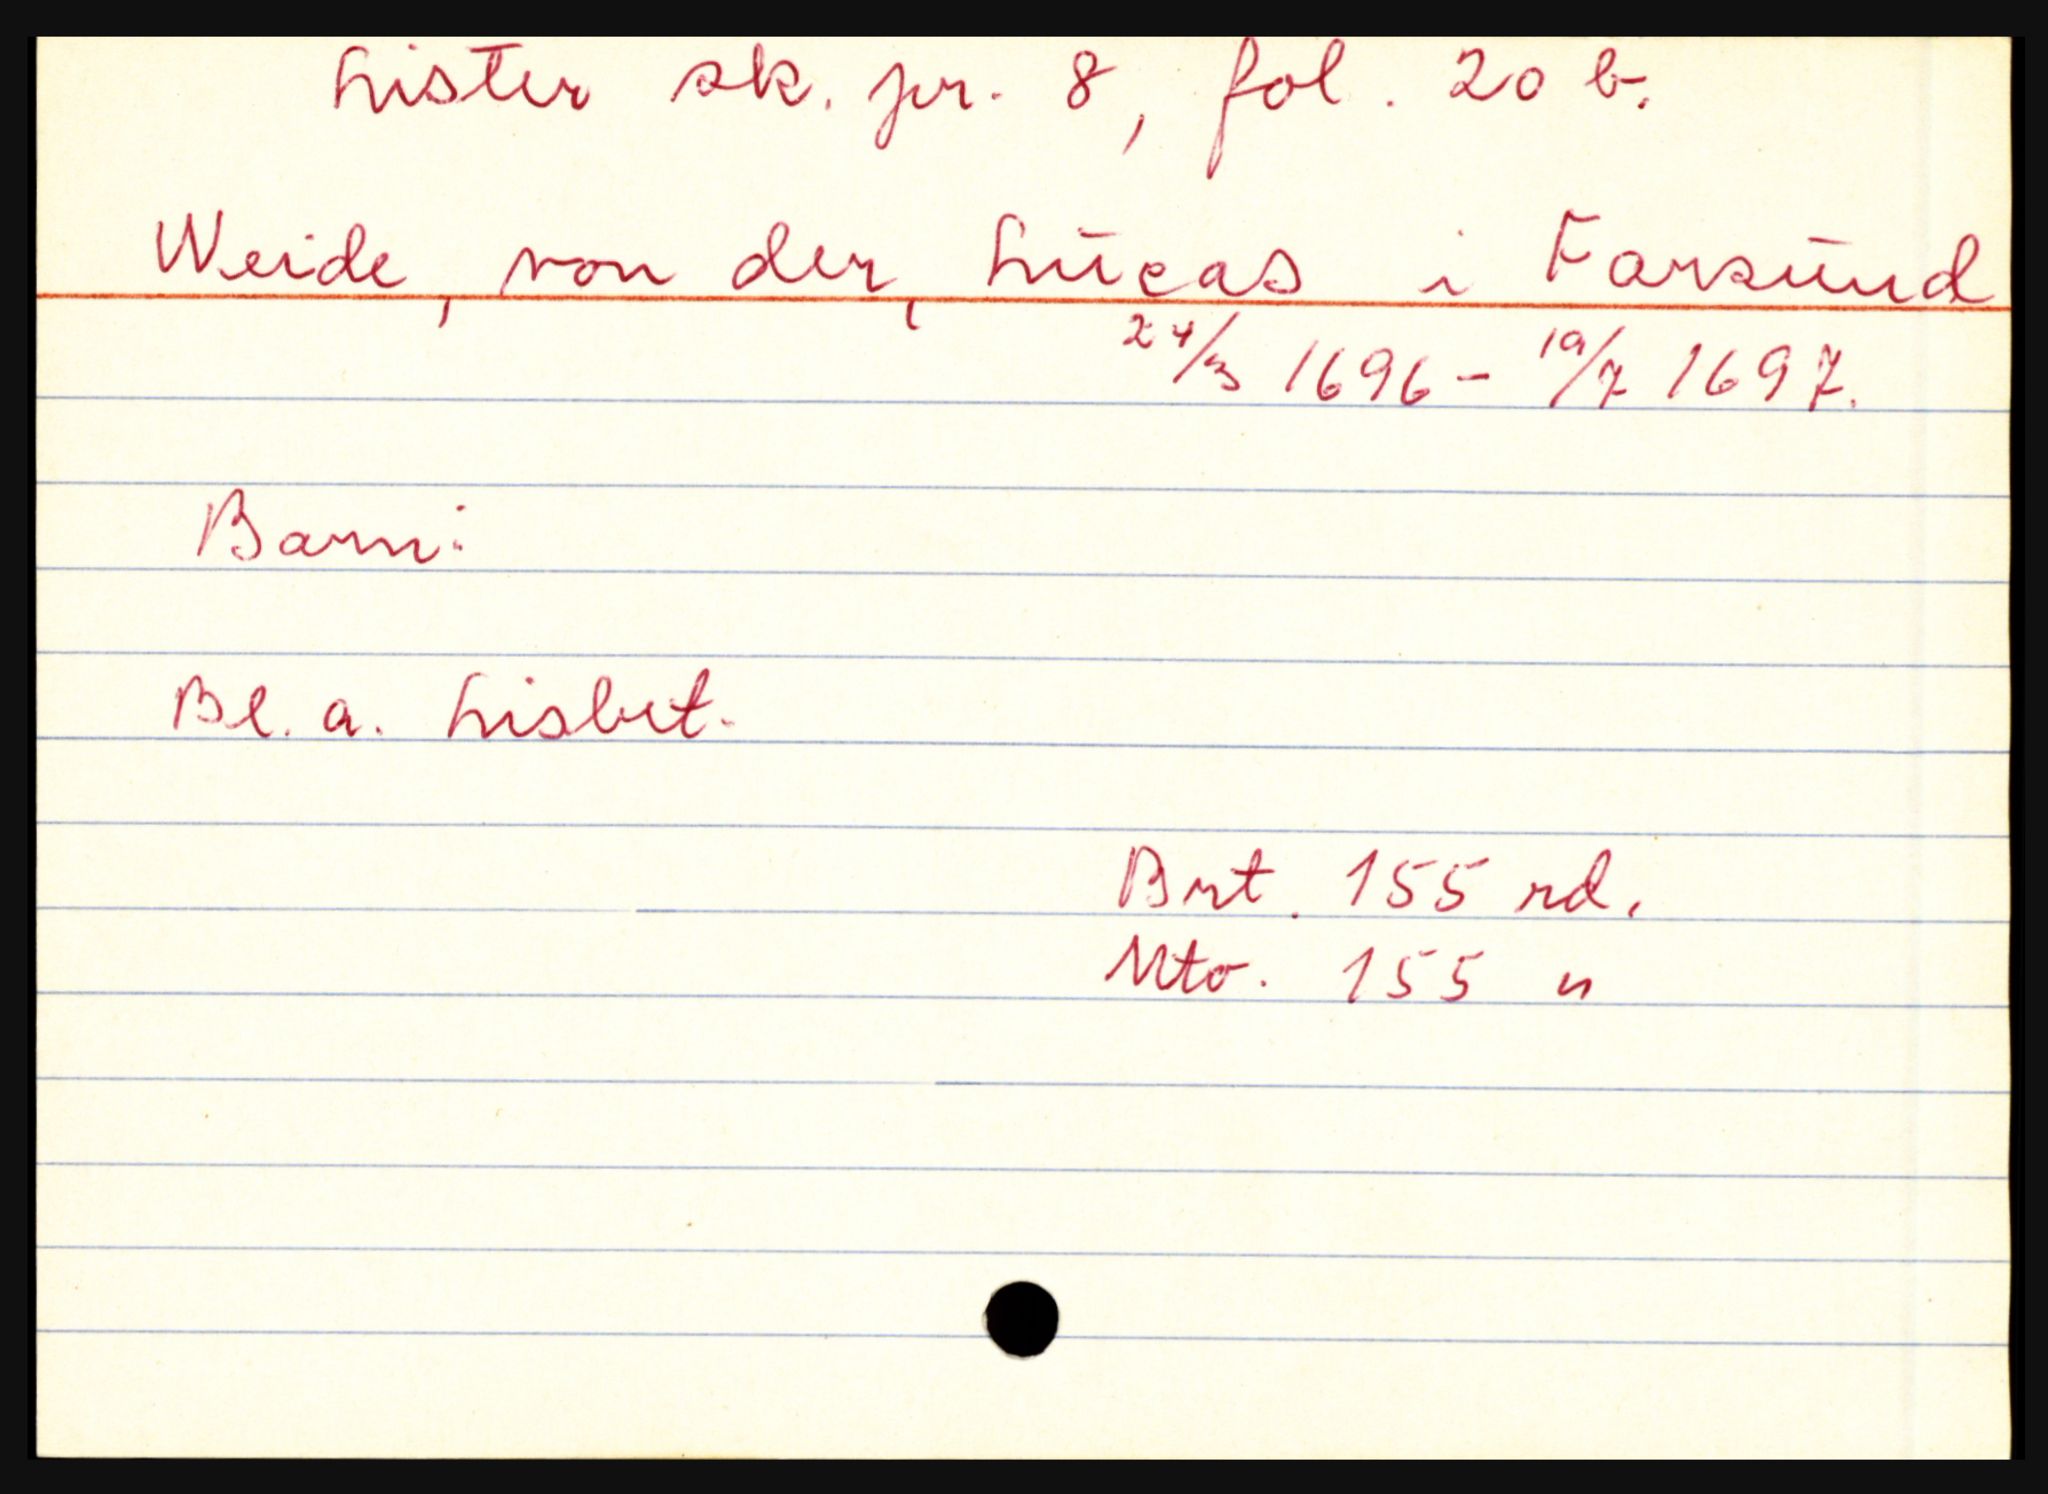 Lister sk. pr. 8, fol. 20 b.
Weide, von der, Lucas i Farsund
24/3 1696 - 19/7 1697.
Barn:
Bl. a. Lisbet.
Brt. 155 rd.
Nto. 155 "